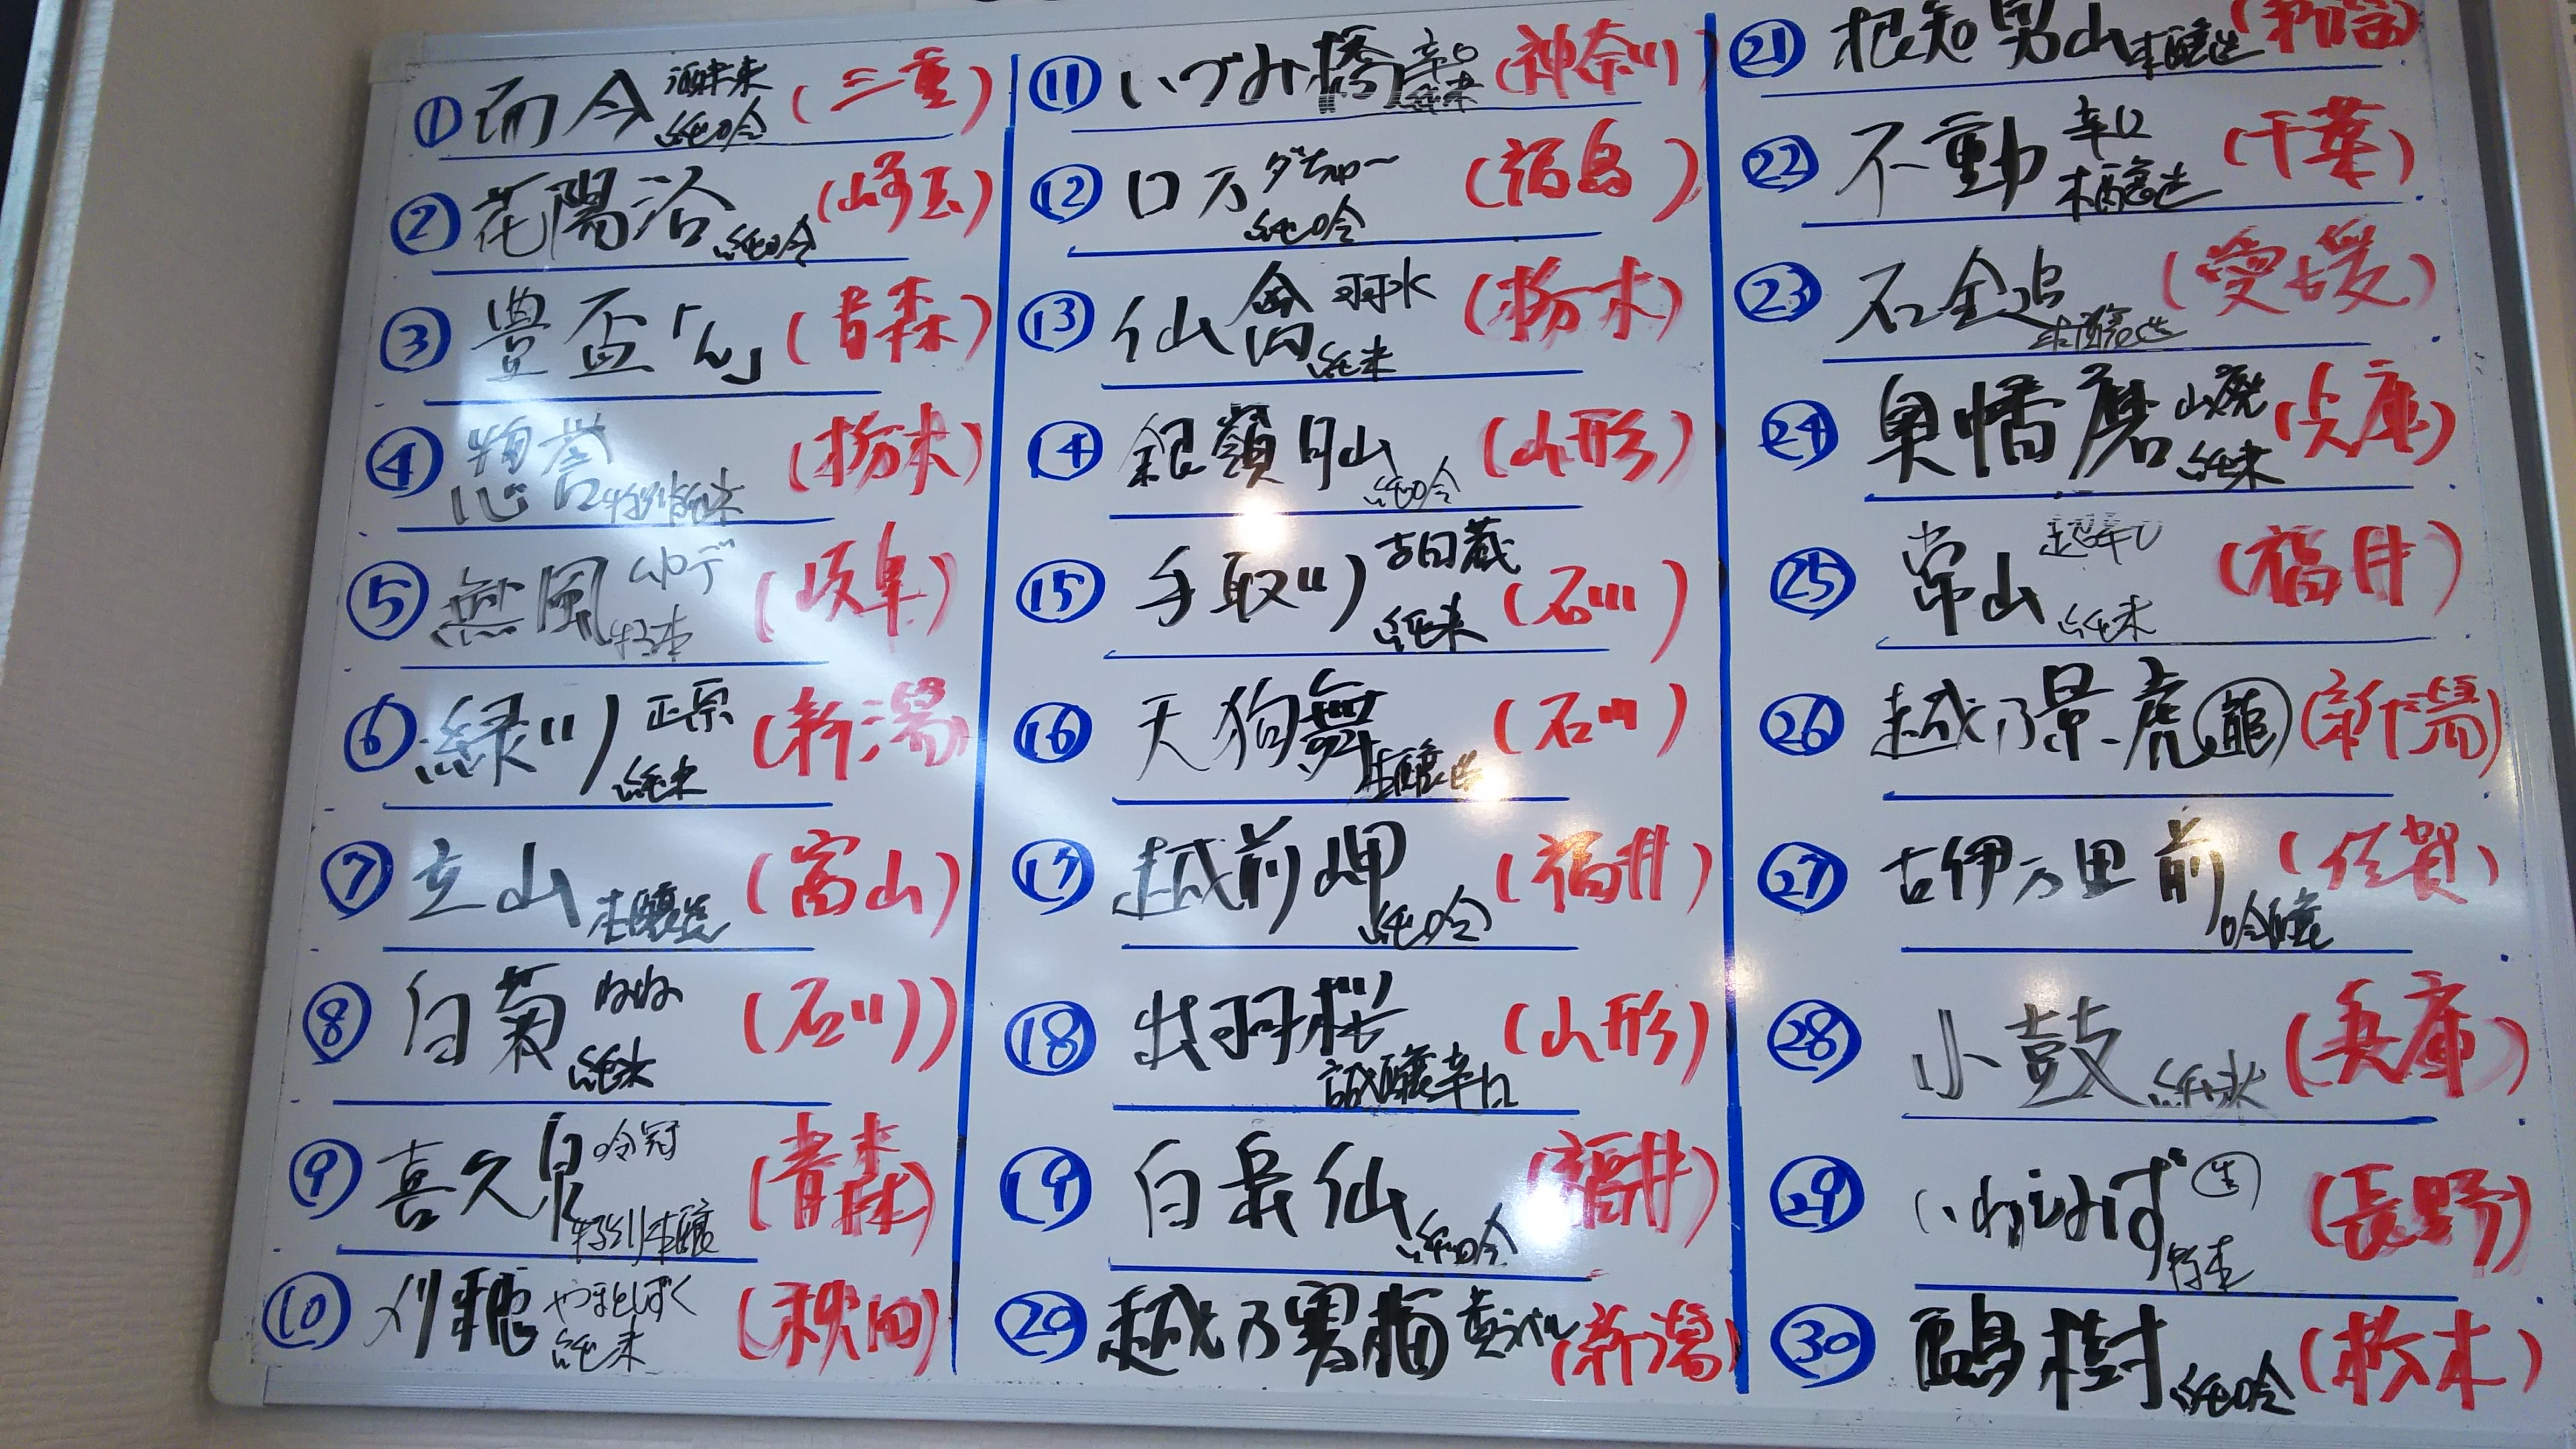 ① 而今 酒未来 純吟 (三重)
② 花陽浴 純吟 (埼玉)
③ 豊盃「ん」 (青森)
④ 惣誉 特別純米 (栃木)
⑤ 無風 ムロデ 特本 (岐阜)
⑥ 緑川 正宗 純米 (新潟)
⑦ 立山 本醸造 (富山)
⑧ 白菊 ねね 純米 (石川)
⑨ 喜久泉 吟冠 特別本醸 (青森)
⑩ 刈穂 やまとしずく 純米 (秋田)
⑪ いづみ橋 辛口 純米 (神奈川)
⑫ ロ万 ダぢゅー 純吟 (福島)
⑬ 仙禽 羽水 純米 (栃木)
⑭ 銀嶺月山 純吟 (山形)
⑮ 手取川 吉田蔵 純米 (石川)
⑯ 天狗舞 本醸造 (石川)
⑰ 越前岬 純吟 (福井)
⑱ 出羽桜 誠醸辛口 (山形)
⑲ 白岳仙 純吟 (福井)
⑳ 越乃寒梅 (新潟)
㉑ 根知男山 本醸造 (新潟)
㉒ 不動 辛口 本醸造 (千葉)
㉓ 石金追 本醸造 (愛媛)
㉔ 奥播磨 山廃 純米 (兵庫)
㉕ 常山 超辛口 純米 (福井)
㉖ 越乃景虎 龍 (新潟)
㉗ 古伊万里 前 吟醸 (佐賀)
㉘ 小鼓 純米 (兵庫)
㉙ いわしみず 生 特本 (長野)
㉚ 鳳樹 純吟 (栃木)